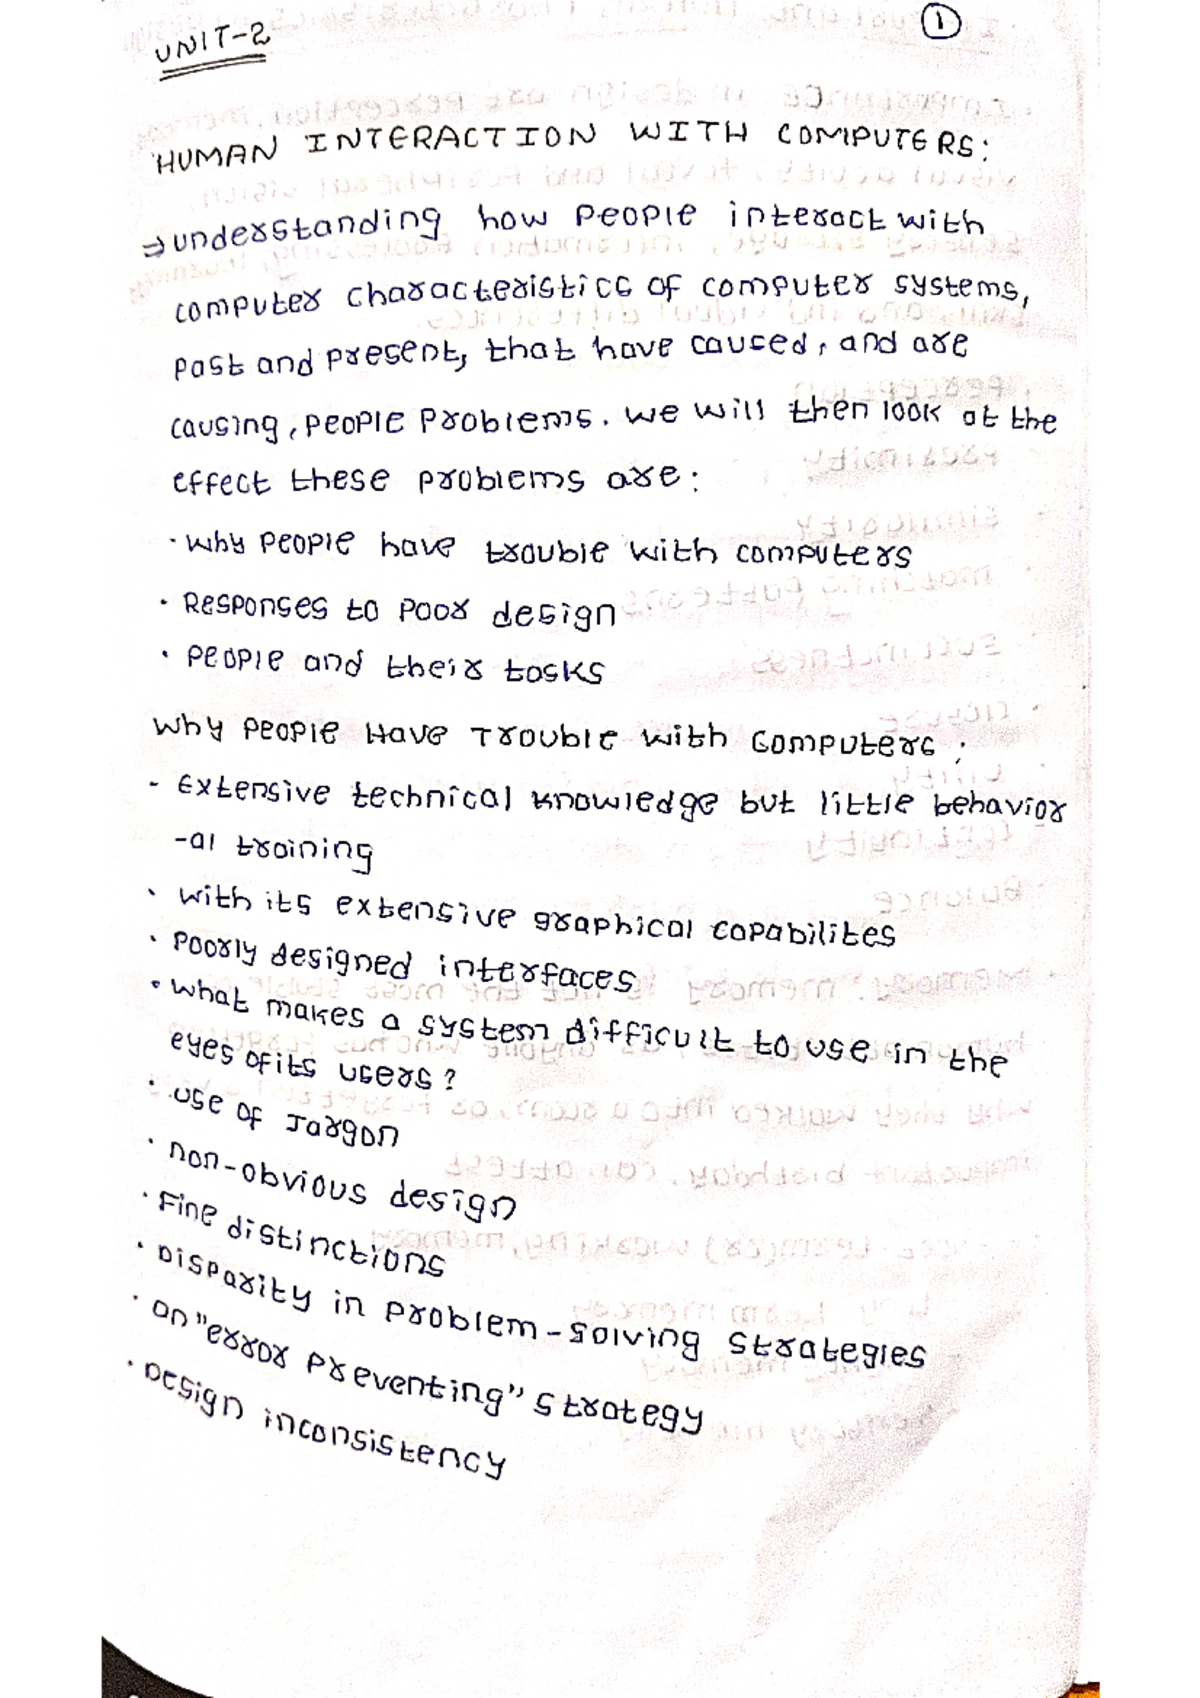 UNIT-2
1
HUMAN INTERACTION WITH COMPUTERS:
⇒ understanding how people interact with
computer characteristics of computer systems,
past and present, that have caused, and are
causing, people problems. we will then look at the
effect these problems are:
· why people have trouble with computers
· Responses to poor design
· People and their tasks
Why People Have Trouble with Computers:
- Extensive technical knowledge but little behavior
-al training
· with its extensive graphical capabilites
· Poorly designed interfaces
· what makes a system difficult to use in the
eyes of its users?
· use of Jargon
· non-obvious design
· Fine distinctions
· Disparity in problem-solving strategies
· an "error preventing" strategy
· Design inconsistency